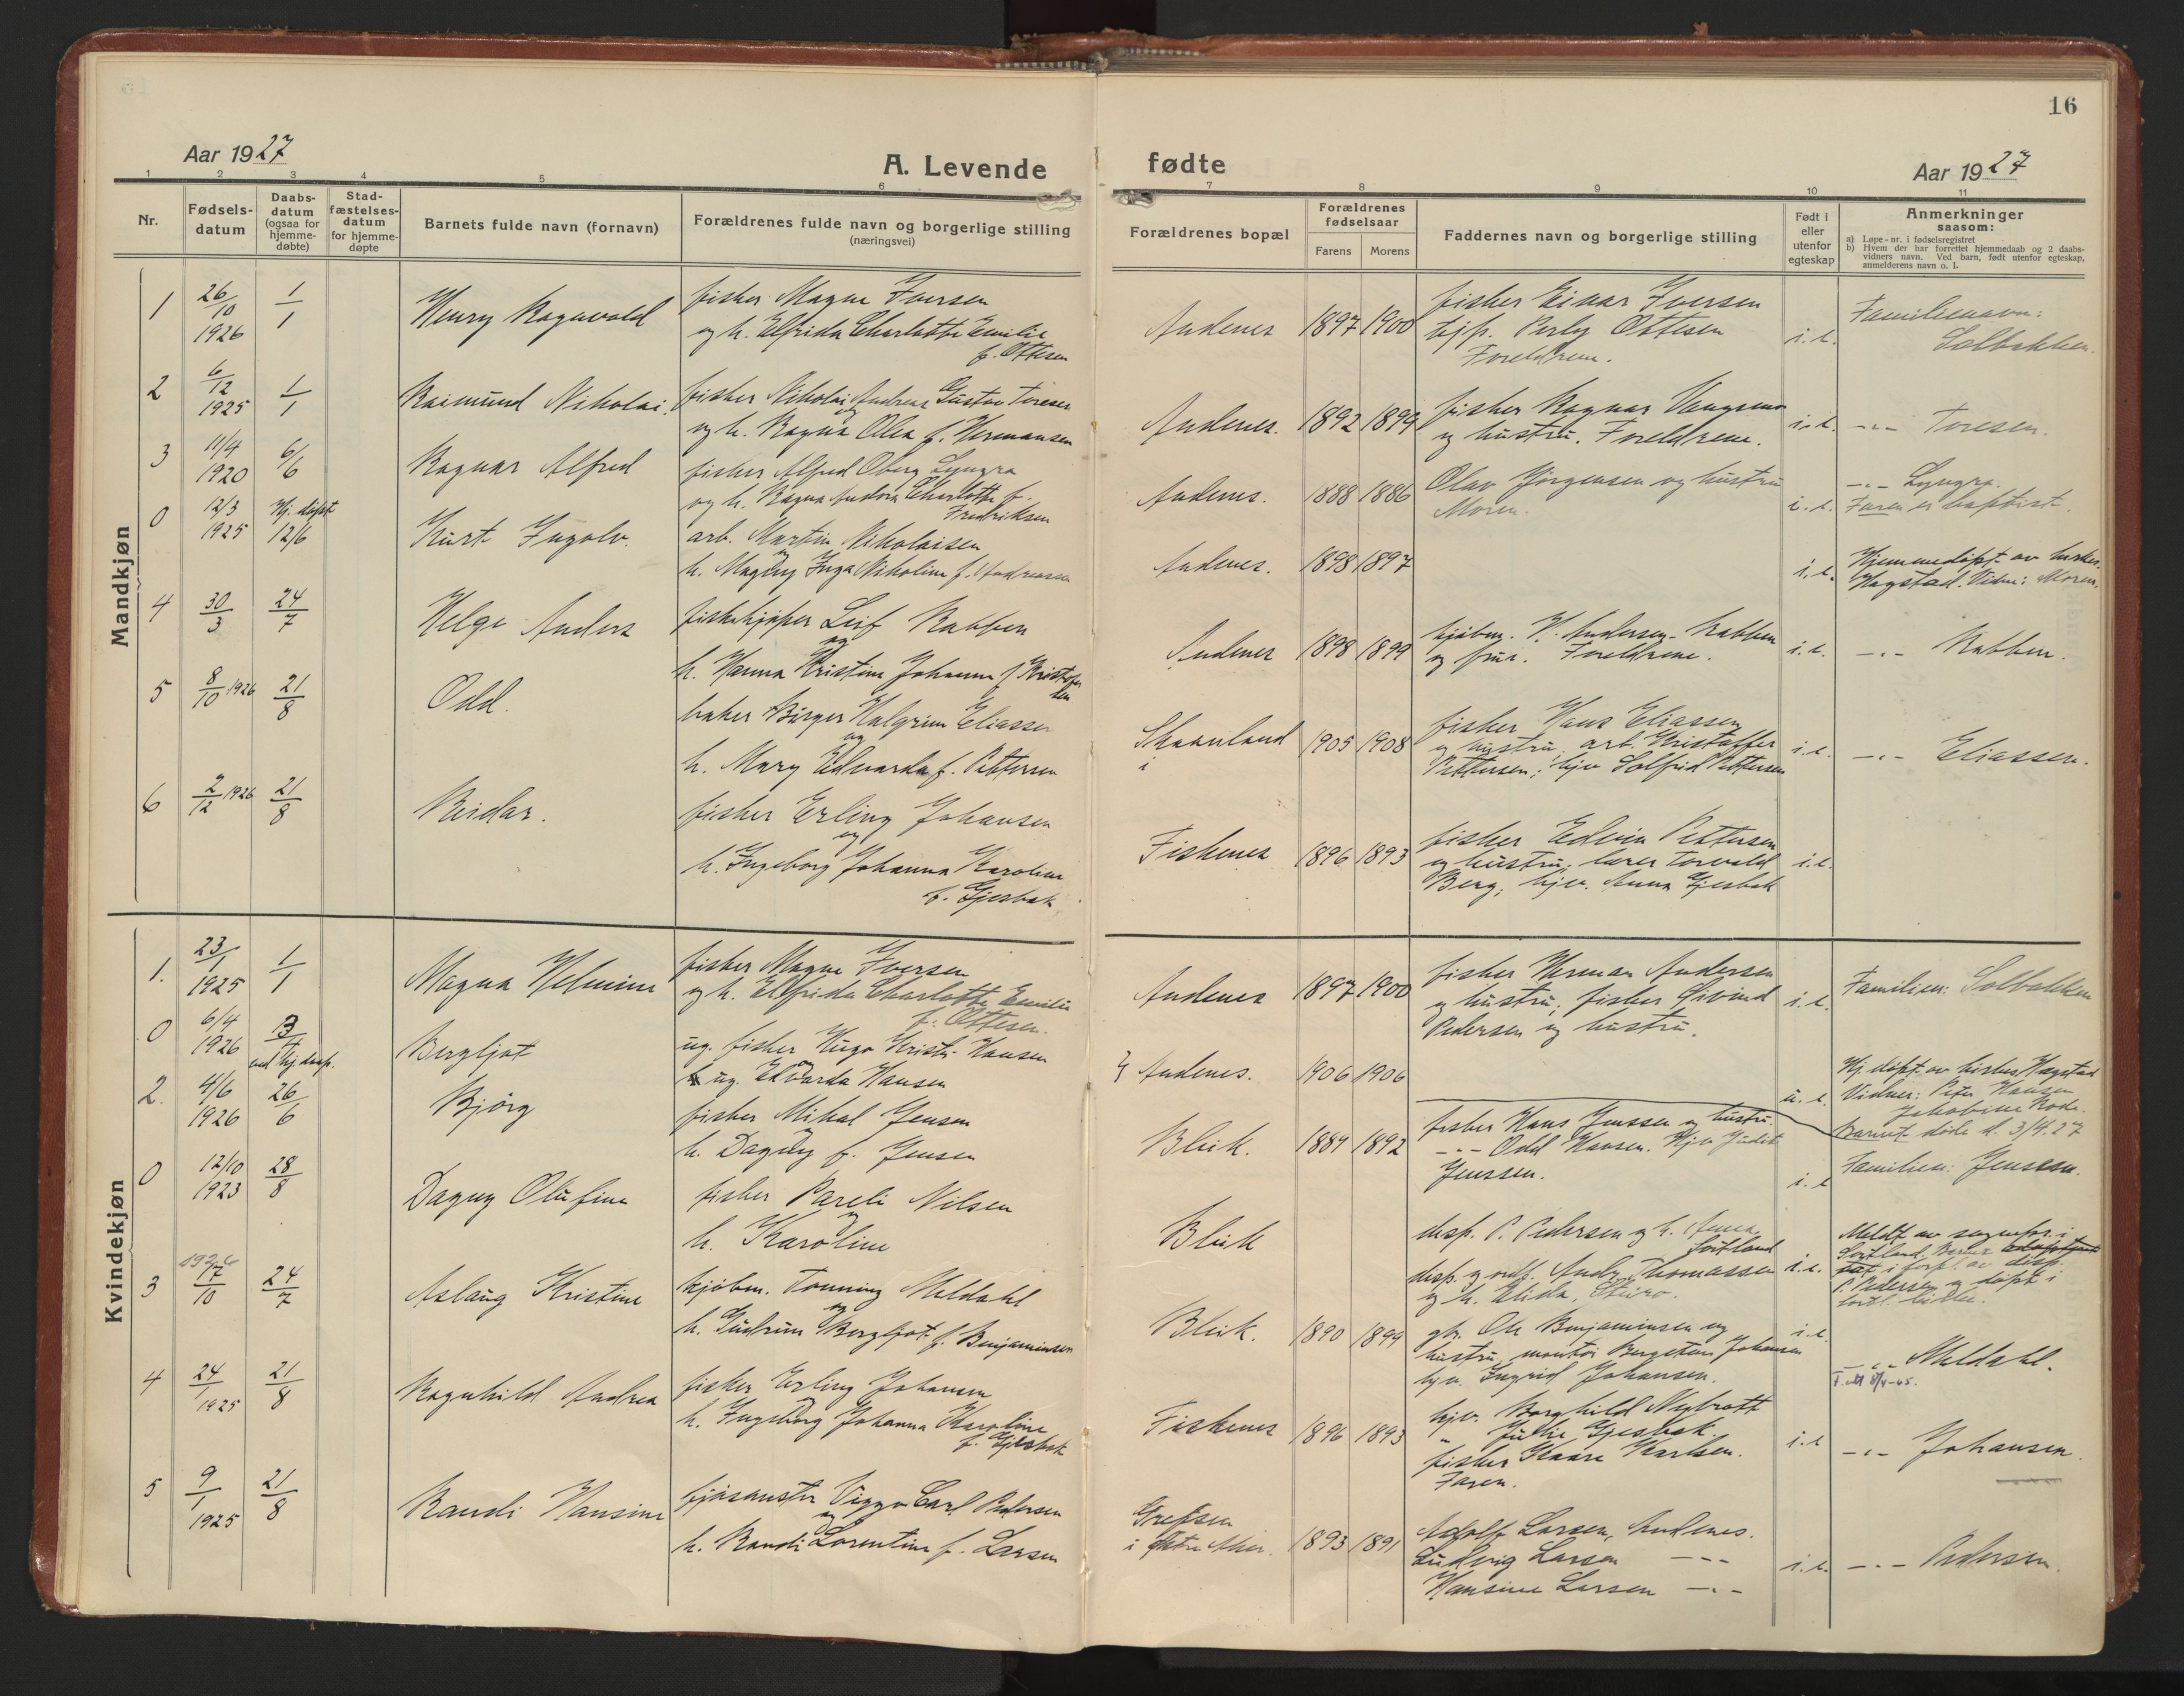 16
Aar 1927
A. Levende
fødte
Aar 1927
1 2 3 4 5 6 7 8 9 10 11
Nr.
Fødsels-
datum
Daabs-
datum
(ogsaa for
hjemme-
døbte)
Stad-
fæstelses-
datum
for hjemme-
døpte
Barnets fulde navn (fornavn)
Forældrenes fulde navn og borgerlige stilling
(næringsvei)
Forældrenes bopæl
Forældrenes
fødselsaar
Farens
Morens
Faddernes navn og borgerlige stilling
Født i
eller
utenfor
egteskap
Anmerkninger
saasom:
a) Løpe-nr. i fødselsregistret
b) Hvem der har forrettet hjemmedaab og 2 daabs-
vidners navn. Ved barn, født utenfor egteskap,
anmelderens navn o. l.
Mandkjøn
1
26/10
1926
1/1
Henry Ragnvald
fisker Magne Iversen
og h. Elfrida Charlotte Emilie
f. Ottesen
Andenes
1897 1900
fisker Einar Iversen
Ottesen
Foreldrene.
i. e.
Familienavn:
Solbakken.
2
6/12
1925
1/1
Raimund Nikolai.
fisker Nikolai Andreas Gustav Toresen
og h. Ragna Olea f. Hermansen
Andenes.
1892 1899
fisker Ragnar
og hustru. Foreldrene.
i. e.
-"- Toresen.
3
11/4
1920
6/6
Ragnar Alfred
fisker Alfred Oberg Lyngra
og h. Ragna Charlotte f.
Fredriksen
Andenes.
1888 1886
Olav Jörgensen og hustru
Moren.
i. e.
-"- Lyngra.
Faren er baptist.
0
12/3
1925
Hj. döpt
12/6
Kurt Ingolv.
arb. Martin Nikolaisen
og
h. Magny Inga Nikoline f. Andreassen
Andenes.
1898 1897
i. e.
Hjemmedöpt av
Hagstad. Vidne: Moren.
4
30/3
24/7
Helge Anders
fiskekjöper Leif Rabben
og
h. Hanna Kristine Johanna f. Kristoffer
sen
Andenes
1898 1899
kjöbm. Andersen-Rabben
og frue. Foreldrene.
i. e.
-"- Rabben.
5
8/10 1926
21/8
Odd.
baker Birger Halgrim Eliassen
og
h. Mary Edvarda f. Pettersen
Skaanland
i
1905 1908
fisker Hans Eliassen
og hustru, arb. Kristoffer
Pettersen; Solfrid Pettersen
i. e.
-"- Eliassen.
6
2/12 1926
21/8
Reidar.
fisker Erling Johansen
og
h. Ingeborg Johanna Karoline
f. Gjesbak
Fiskenes
1896 1893
fisker Edvin Pettersen
og hustru, lærer Torvald
Berg, Anna Gjesbak
i. e.
Kvindekjøn
1.
23/1
1925
1/1
Magna Helmine
fisker Magne Iversen
og h. Elfrida Charlotte Emilie
f. Ottesen.
Andenes
1897 1900
fisker Herman Andersen
og hustru, fisker Eivind
Pedersen og hustru.
i. e.
Familien: Solbakken
0
6/4
1926
ved hj. daap.
Bergljot
ug. fisker Hugo Hansen
og
ug. Edvarda Hansen
Andenes.
1906 1906
u. e.
Hj. döpt av Hagstad
Vidner: Peter Hansen
Barnet döde d. 3/4.27
2.
4/6
1926
26/6
Bjørg
fisker Mikal Jensen
og
h. Dagny f. Jensen
Bleik.
1889 1892
fisker Hans Jenssen og hustru.
-"- Odd Hansen. Judit
Jenssen.
i. e
Familien: Jenssen.
0
12/10
1923
28/8
Dagny Olufine
fisker Pareli Nilsen
og
h. Karoline
Bleik
disp. P. Pedersen og h.
Sortland
Andr. Thomassen
og h. Elida,
i. e.
Meldt av sogneprs. i
Sortland. Barnet
P. Pedersen og döpt i
3
1926
17/10
24/7
Aslaug Kristine
kjöbm. Tönning Meldahl
og
h. Gudrun Bergljot f. Benjaminsen
Bleik.
1890 1899
gbr. Ole Benjaminsen og
hustru, montör Johansen
Ingrid Johansen.
i. e.
-"- Meldahl.
4
24/1
1925
21/8
Ragnhild Andrea
fisker Erling Johansen
h. Ingeborg Johanna Karoline
f. Gjesbak
Fiskenes
1896 1893
Borghild
" Gjesbak.
fisker Kaare Karlsen.
Faren.
i. e
-"- Johansen.
5
9/1
1925
21/8
Randi Hansine
Viggo Carl Pedersen
og
h. Randi Lorentine f. Larsen
Grefsen
i Aker.
1893 1891
Adolf Larsen, Andenes.
Ludvig Larsen -"-
Hansine Larsen -"-
i. e.
-"- Pedersen.